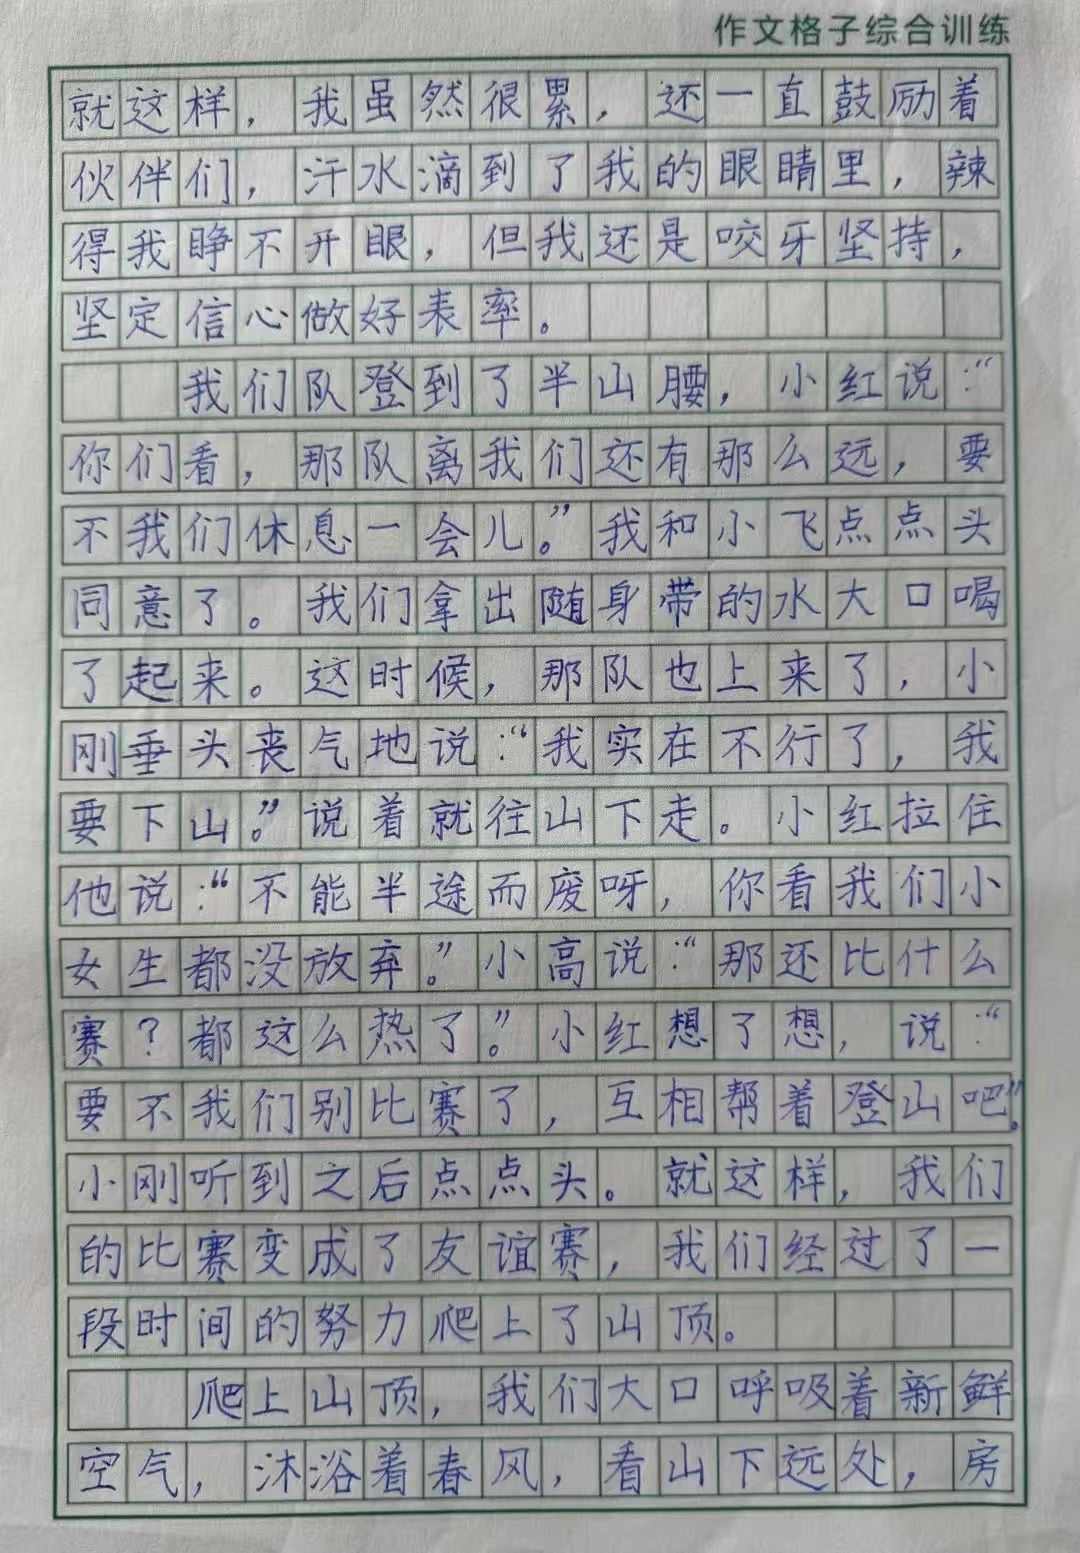 作文格子综合训练
就这样，我虽然很累，还一直鼓励着
伙伴们，汗水滴到了我的眼睛里，辣
得我睁不开眼，但我还是咬牙坚持，
坚定信心做好表率。
我们队登到了半山腰，小红说：“
你们看，那队离我们还有那么远，要
不我们休息一会儿。”我和小飞点点头
同意了。我们拿出随身带的水大口喝
了起来。这时候，那队也上来了，小
刚垂头丧气地说：“我实在不行了，我
要下山。”说着就往山下走。小红拉住
他说：“不能半途而废呀，你看我们小
女生都没放弃。”小高说：“那还比什么
赛？都这么热了。”小红想了想，说：“
要不我们别比赛了，互相帮着登山吧。”
小刚听到之后点点头。就这样，我们
的比赛变成了友谊赛，我们经过了一
段时间的努力爬上了山顶。
爬上山顶，我们大口呼吸着新鲜
空气，沐浴着春风，看山下远处，房